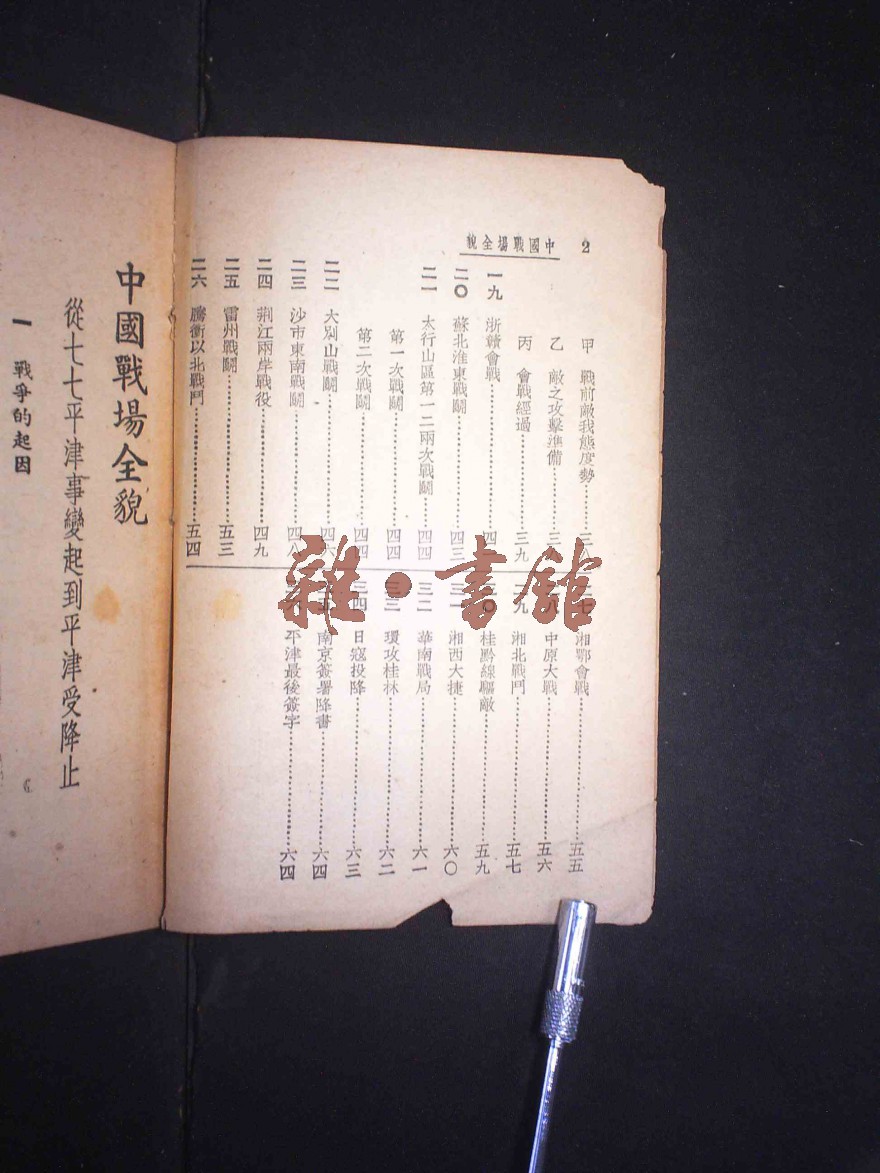 2 中國戰場全貌
甲 戰前敵我態度勢
乙 敵之攻擊準備
丙 會戰經過 三九
一九 浙贛會戰
二〇 蘇北淮東戰鬭 四三
二一 太行山區第一二兩次戰鬭 四四
第一次戰鬭 四四
第二次戰鬭 四四
二二 大別山戰鬭 四六
二三 沙市東南戰鬭 四八
二四 荊江兩岸戰役 四九
二五 雷州戰鬭 五三
二六 騰衝以北戰鬥 五四
湘鄂會戰 五五
中原大戰 五六
湘北戰鬥 五七
桂黔線驅敵 五九
三一 湘西大捷 六〇
三二 華南戰局 六一
三三 環攻桂林 六二
三四 日寇投降 六三
南京簽署降書 六四
平津最後簽字 六四
中國戰場全貌
從七七平津事變起到平津受降止
一 戰爭的起因
雜·書館